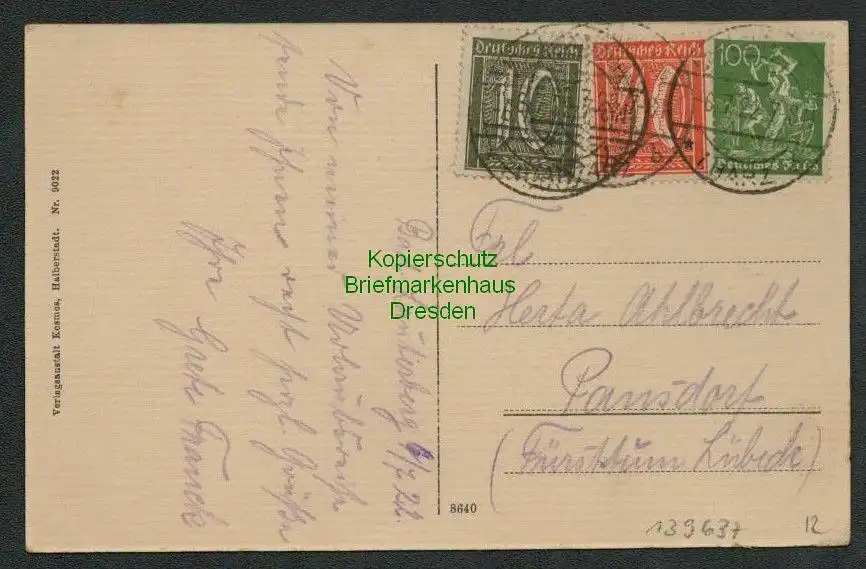 Deutsches Reich
10
Deutsches Reich
100
Deutsches Reich
(HARZ)
Verlagsanstalt Kosmos, Halberstadt. Nr. 9022
Bad Lauterberg 6/7 22.
Von meiner
sende Ihnen recht herzl. Grüße
Ihre Grete Franck
Kopierschutz
Briefmarkenhaus
Dresden
Frl
Herta Ahlbrecht
Pansdorf
(Fürsttum Lübeck)
8640
139637
12